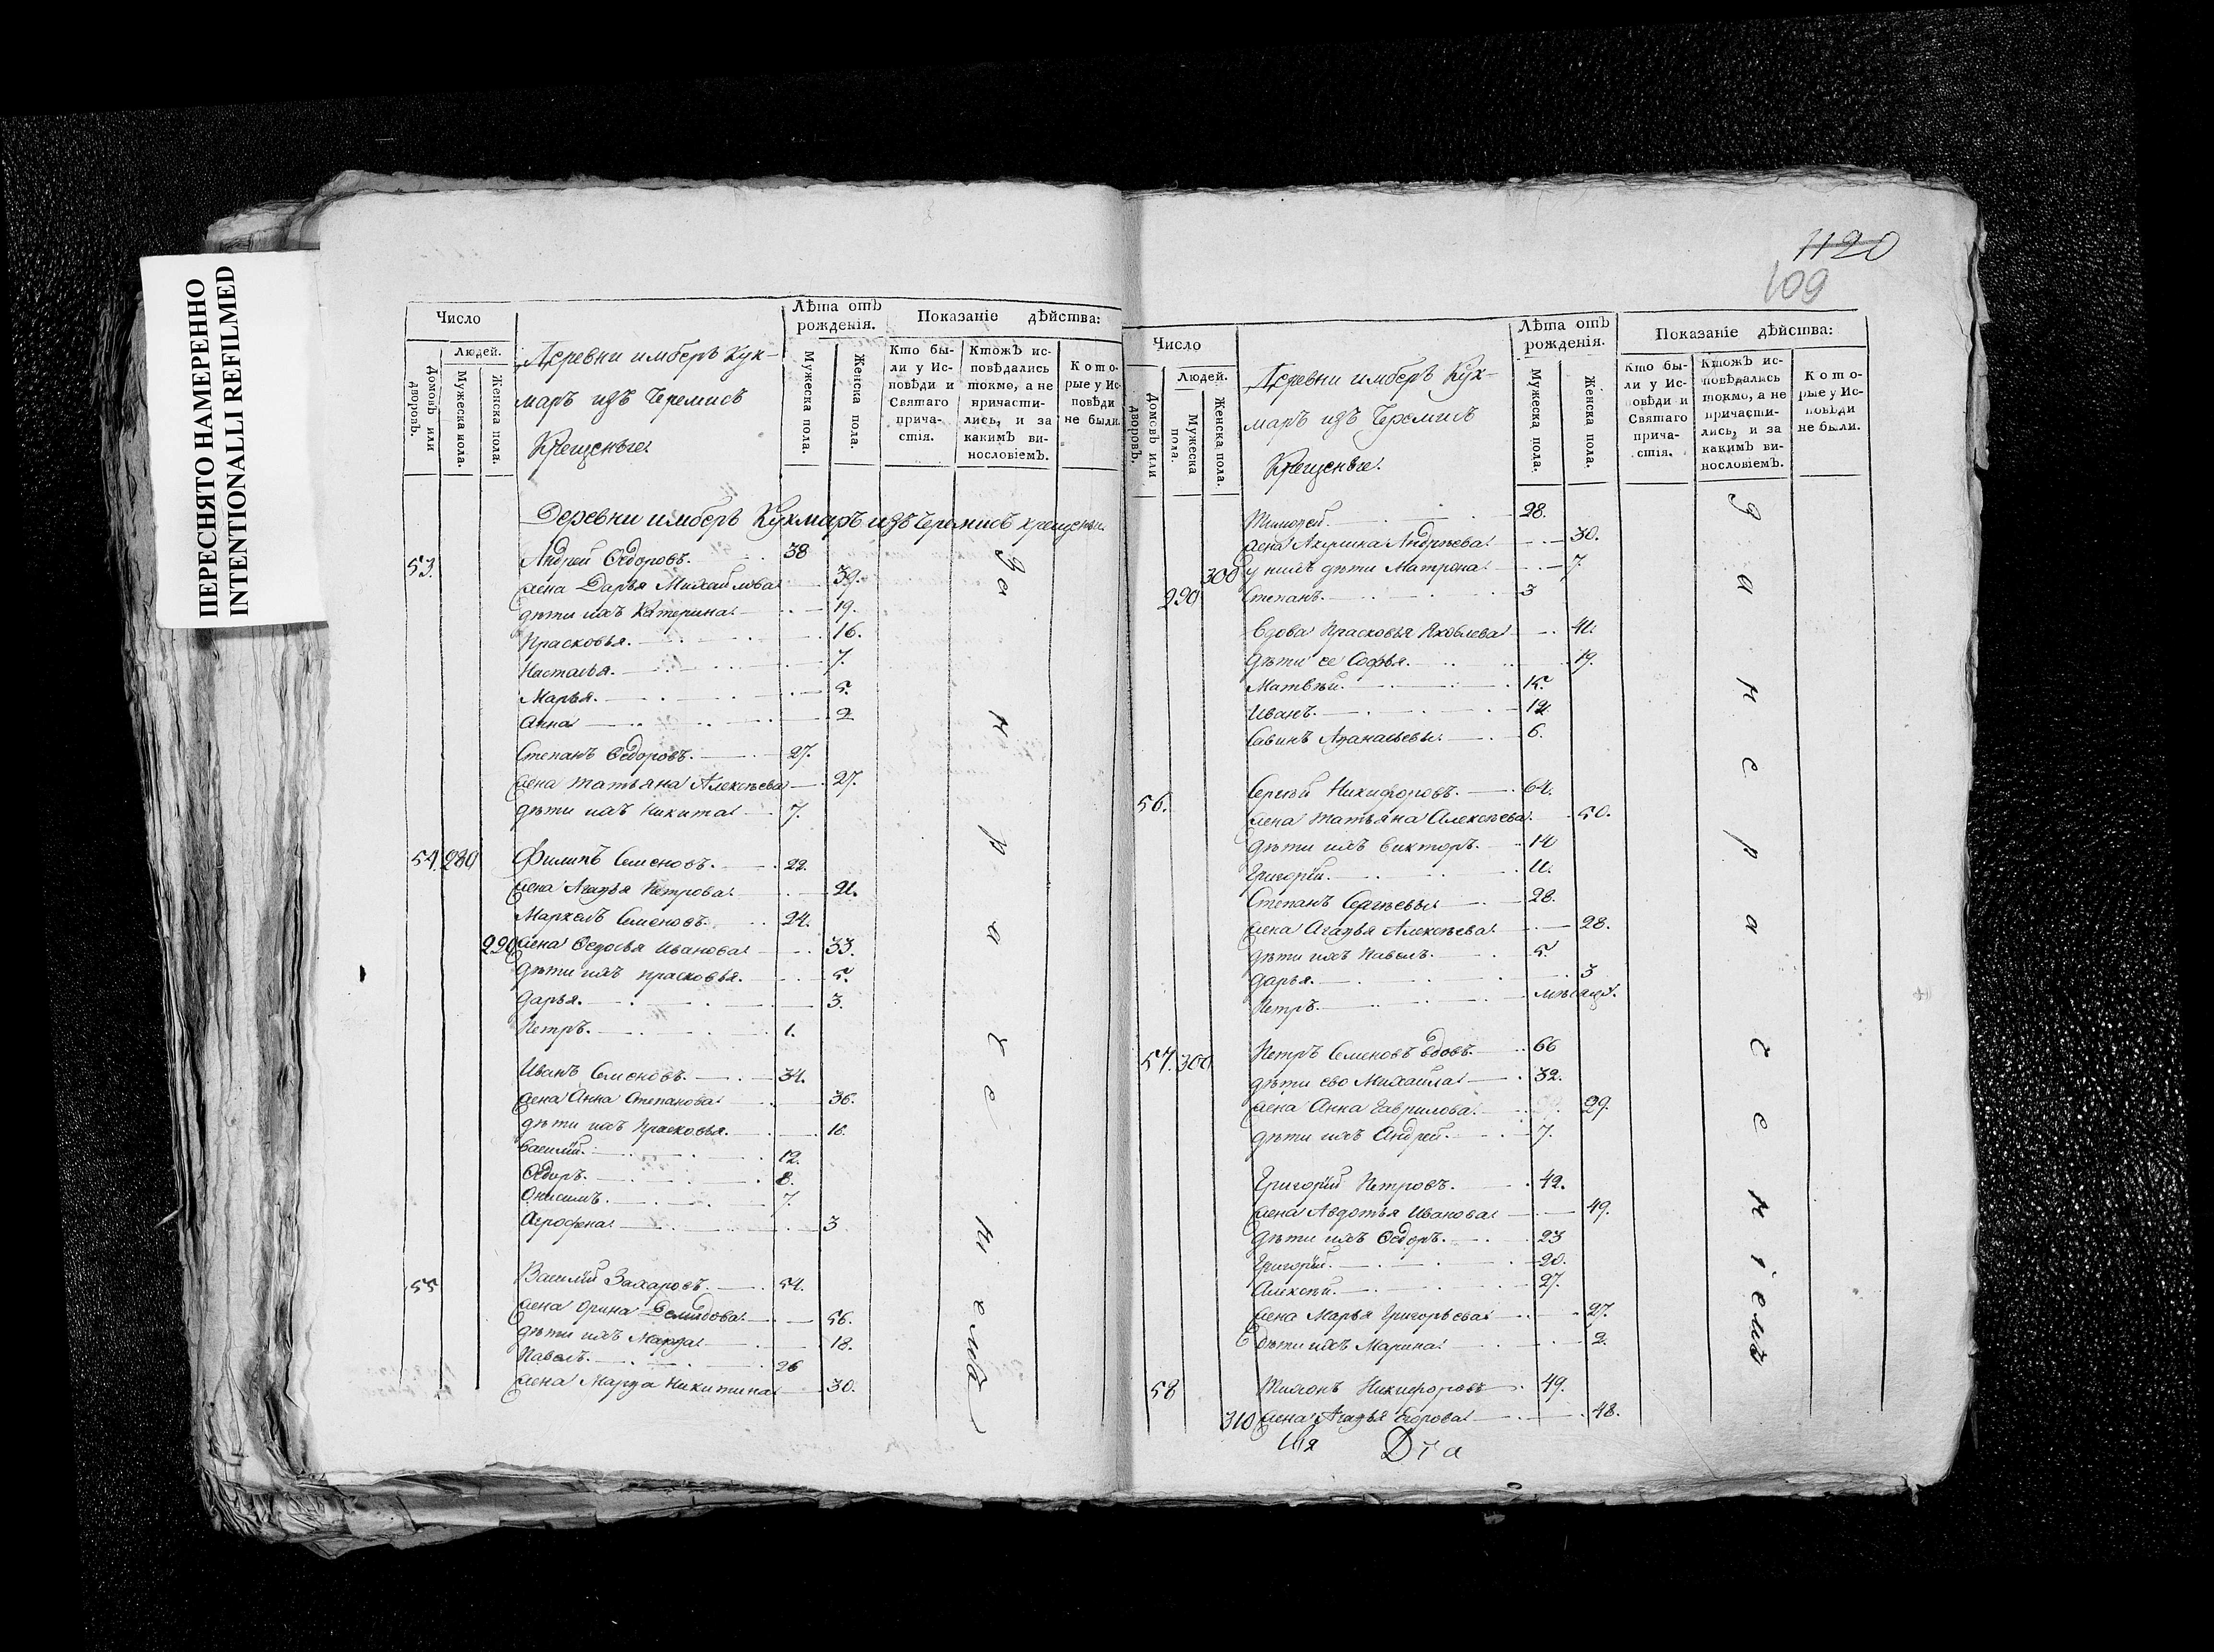 ПЕРЕСНЯТО НАМЕРЕННО
INTENTIONALLI REFILMED
Число
Людей.
Домовъ или дворовъ.
Мужеска пола.
Женска пола.
Деревни имберъ Кук-
маръ изъ Черемисъ
Крещеные.
Лѣта отъ рожденія.
Мужеска пола.
Женска пола.
Показаніе дѣйства:
Кто бы-
ли у Ис-
повѣди и
Святаго
прича-
стія.
Ктожъ ис-
повѣдались
токмо, а не
причасти-
лись, и за
какимъ ви-
нословіемъ.
Кото-
рые у Ис-
повѣди
не были.
Деревни имберъ Кукмаръ изъ Черемисъ крещены.
53. Андрей Ѳедоровъ. 38
жена Дарья Михайлова 39.
дѣти ихъ Катерина 19.
Прасковья. 16.
Настасья. 7.
Марья. 5.
Анна 2
Степанъ Ѳедоровъ. 27.
жена Татьяна Алексѣева 27.
дѣти ихъ Никита 7.
54. 280 Филипъ Семеновъ. 22.
жена Агафья Петрова 21.
Маркелъ Семеновъ. 24.
290 жена Ѳедосья Иванова 33.
дѣти ихъ Прасковья. 5.
Дарья. 3.
Петръ. 1.
Иванъ Семеновъ. 34.
жена Анна Степанова 36.
дѣти ихъ Прасковья. 16.
Василій. 12.
Ѳедоръ. 8.
Онисимъ. 7.
Агрофена 3
55 Василій Захаровъ. 54.
жена Орина Демидова 56.
дѣти ихъ Марфа 18.
Павелъ. 26
жена Марфа Никитина 30.
За нерачениемъ
1120
109
Число
Людей.
Домовъ или дворовъ.
Мужеска пола.
Женска пола.
Деревни имберъ Кук-
маръ изъ Черемисъ
Крещеные.
Лѣта отъ рожденія.
Мужеска пола.
Женска пола.
Показаніе дѣйства:
Кто бы-
ли у Ис-
повѣди и
Святаго
прича-
стія.
Ктожъ ис-
повѣдались
токмо, а не
причасти-
лись, и за
какимъ ви-
нословіемъ.
Кото-
рые у Ис-
повѣди
не были.
Тимофей. 28.
жена Акулина Андреева 30.
300 у нихъ дѣти Матрена 7.
290 Степанъ. 3
Вдова Прасковья Яковлева 41.
дѣти ее Софья. 19.
Матвѣй. 15.
Иванъ. 12.
Савинъ Афанасьевы. 6.
56. Сергѣй Никифоровъ. 64.
жена Татьяна Алексѣева 50.
дѣти ихъ Викторъ. 14
Григорій. 11.
Степанъ Сергѣевы 28.
жена Агафья Алексѣева 28.
дѣти ихъ Павелъ. 5.
Дарья. 3
Петръ. мѣсяцъ.
57. 300 Петръ Семеновъ вдовъ. 66
дѣти ево Михайла 32.
жена Анна Гаврилова 29.
дѣти ихъ Андрей. 7.
Григорій Петровъ. 42.
жена Авдотья Иванова 49.
дѣти ихъ Ѳедоръ. 23
Григорій. 20.
Алексѣй. 27.
жена Марья Григорьева 27.
дѣти ихъ Марина 2.
58 Тихонъ Никифоровъ 49.
310 жена Агафья Егорова 48.
За нерачениемъ